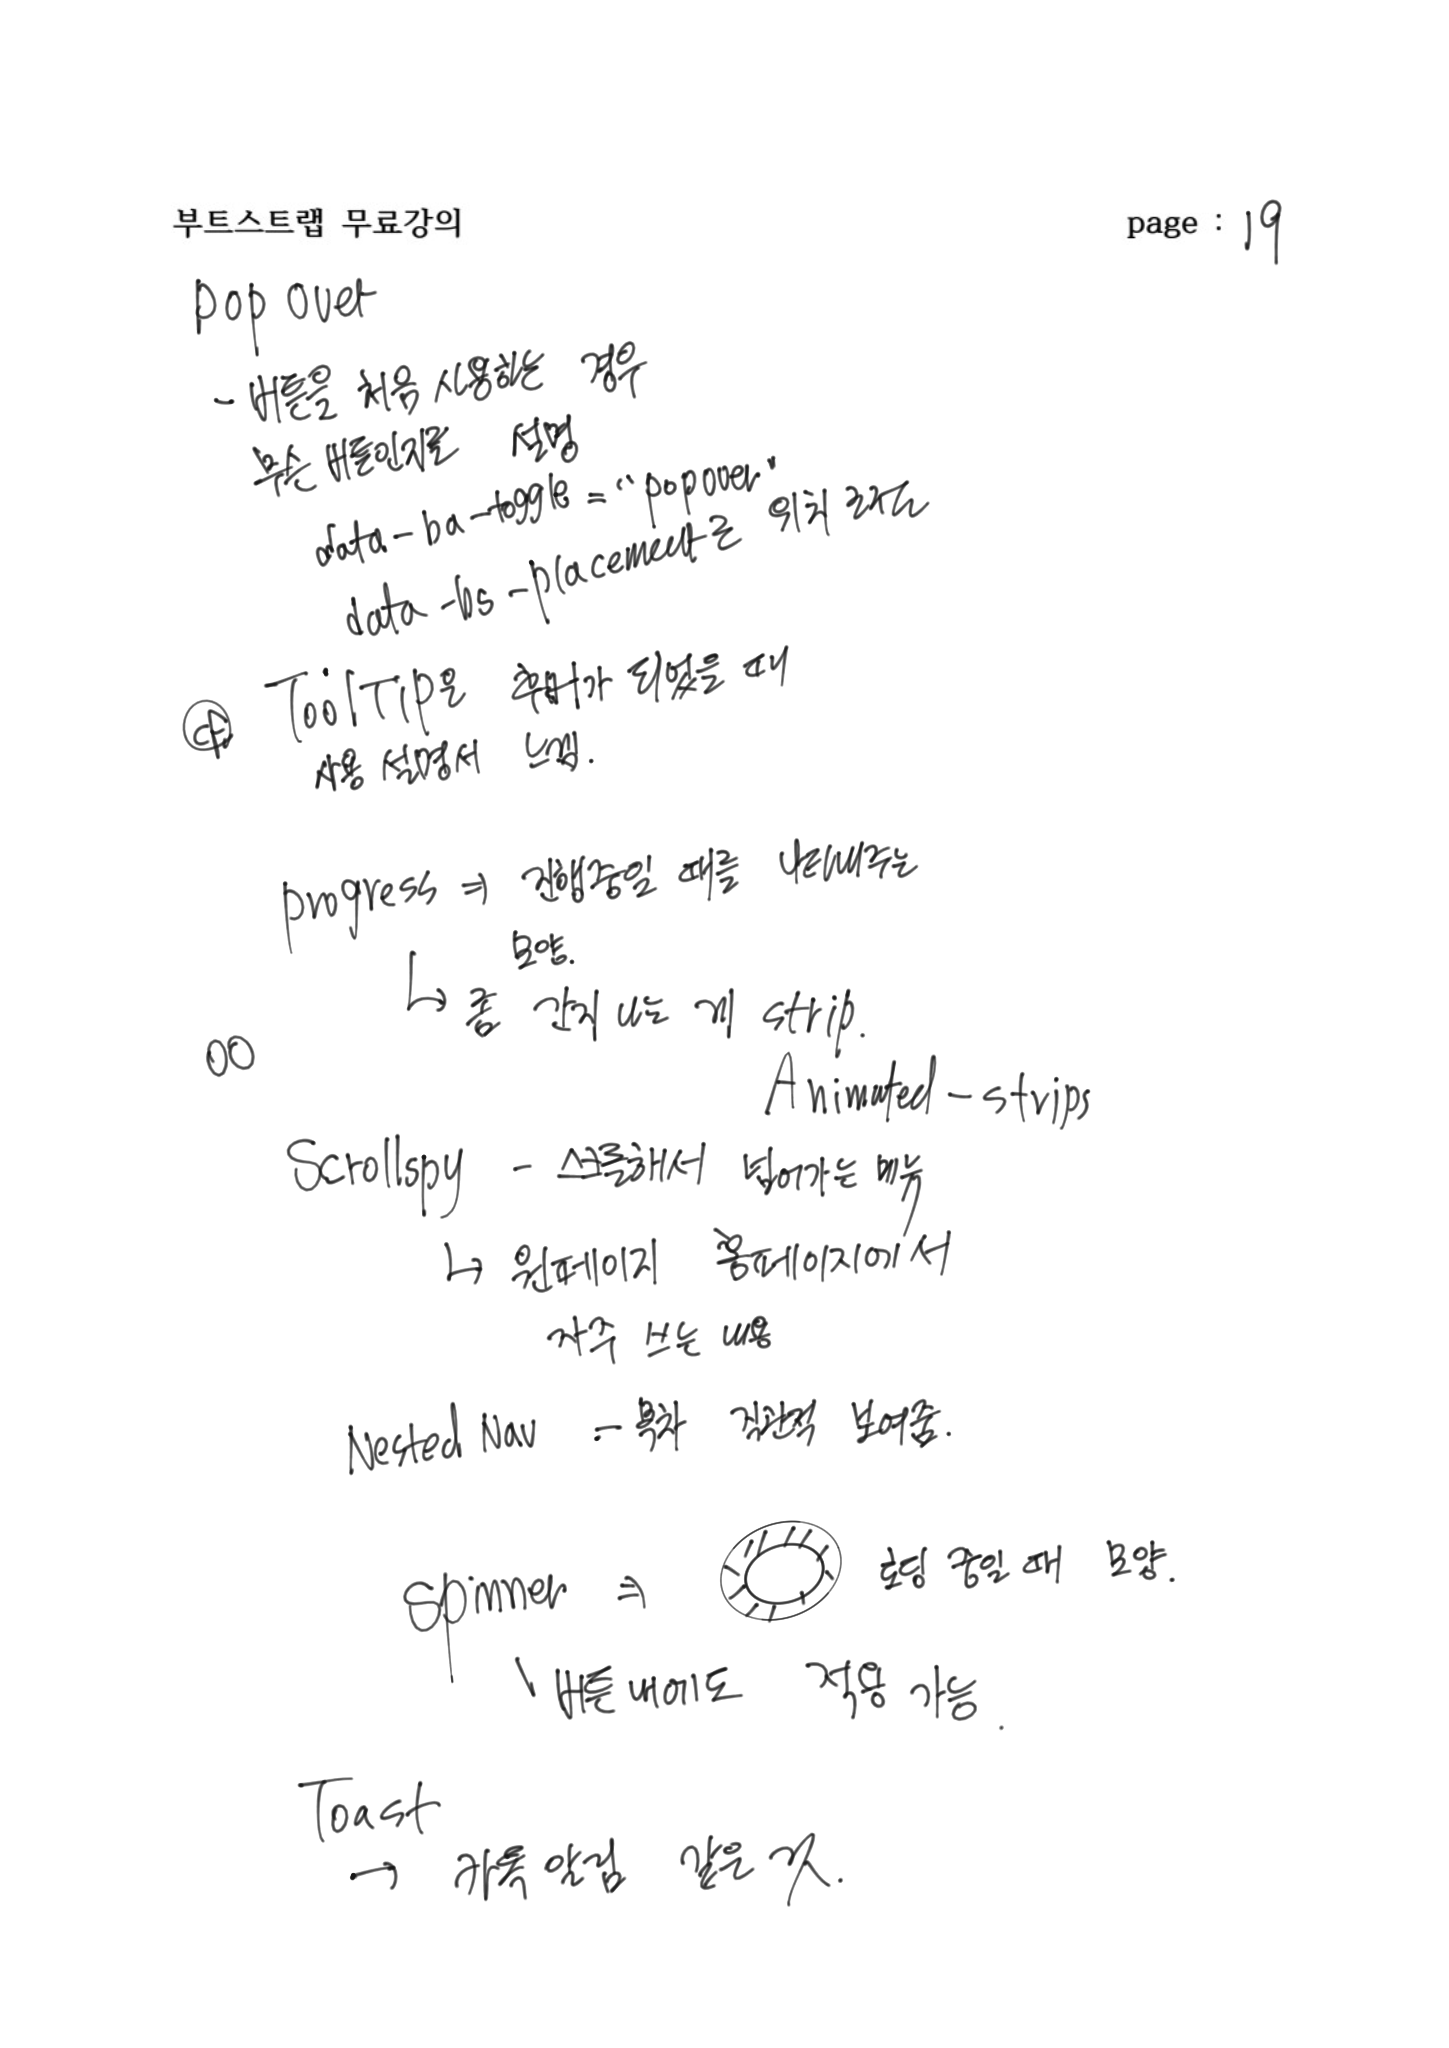 부트스트랩 무료강의
page : 19
pop over
- 버튼을 처음 사용하는 경우
무슨 버튼인지를 설명
data-ba-toggle = "popover"
data-bs-placement로 위치
cf ToolTip은 후버가 되었을 때
사용 설명서 느낌.
progress ⇒ 진행중일 때를 나타내주는
모양.
↳ 좀 간지 나는 게 strip.
00
Animated-strips
Scrollspy - 스크롤해서 넘어가는 메뉴
↳ 원페이지 홈페이지에서
자주 쓰는 내용
Nested Nav - 목차 직관적 보여줌.
Spinner ⇒ 로딩 중일 때 모양.
\ 버튼 내에도 적용 가능.
Toast
→ 카톡 알림 같은 것.